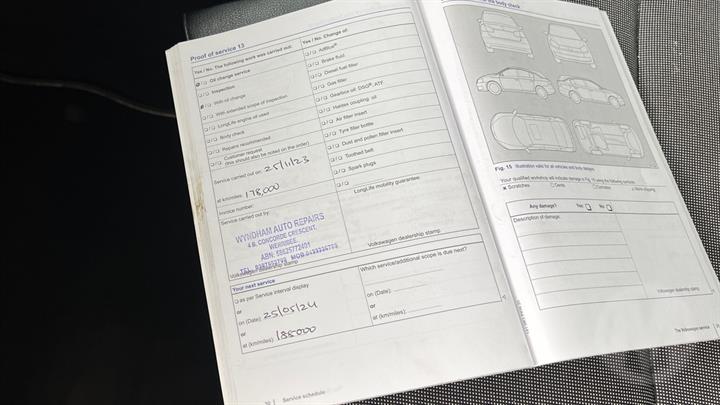 Proof of service 13
Yes / No: The following work was carried out:
Oil change service
Inspection
With oil change
With extended scope of inspection
LongLife engine oil used
Body check
Repairs recommended
Customer request
(this should also be noted on the order)
Service carried out on: 25/11/23
at km/miles: 178,000
Invoice number:
Service carried out by:
WYNDHAM AUTO REPAIRS
4 B, CONCORDE CRESCENT,
WERRIBEE
Volkswagen dealership stamp
Yes / No: Change of:
AdBlue®
Brake fluid
Diesel fuel filter
Gas filter
Gearbox oil: DSG®, ATF
Haldex coupling: oil
Air filter insert
Tyre filler bottle
Dust and pollen filter insert
Toothed belt
Spark plugs
LongLife mobility guarantee:
Volkswagen dealership stamp
Your next service
as per Service interval display
or
on (Date): 25/05/24
or
at (km/miles): 188000
Which service/additional scope is due next?
on (Date):
or
at (km/miles):
Service schedule
the body check
Fig. 15 Illustration valid for all vehicles and body designs.
Your qualified workshop will indicate damage in Fig. 15 using the following symbols:
Scratches Dents Corrosion Stone chipping
Any damage? Yes No
Description of damage:
Volkswagen dealership stamp
The Volkswagen service